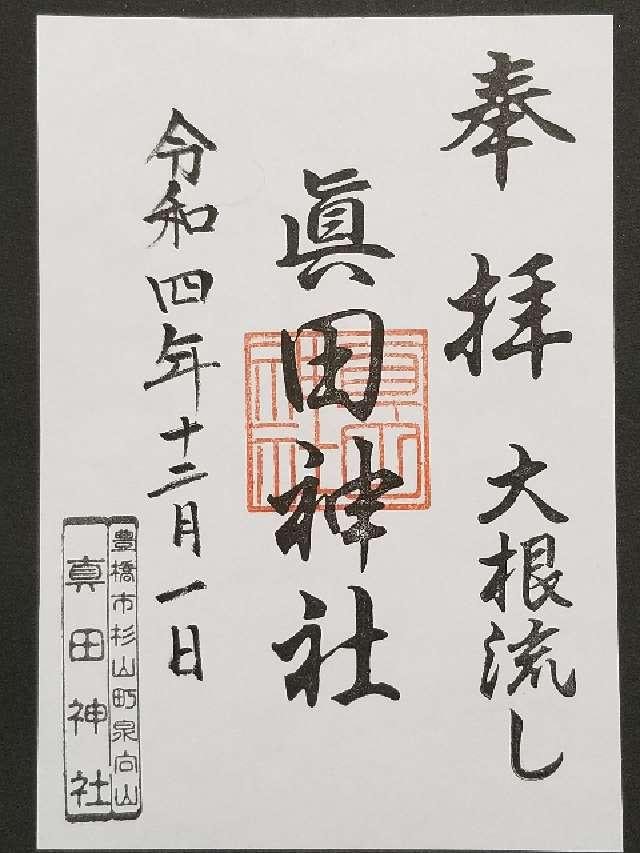 奉拝
大根流し
眞田神社
真田神社
令和四年十二月一日
豊橋市杉山町泉向山
真田神社